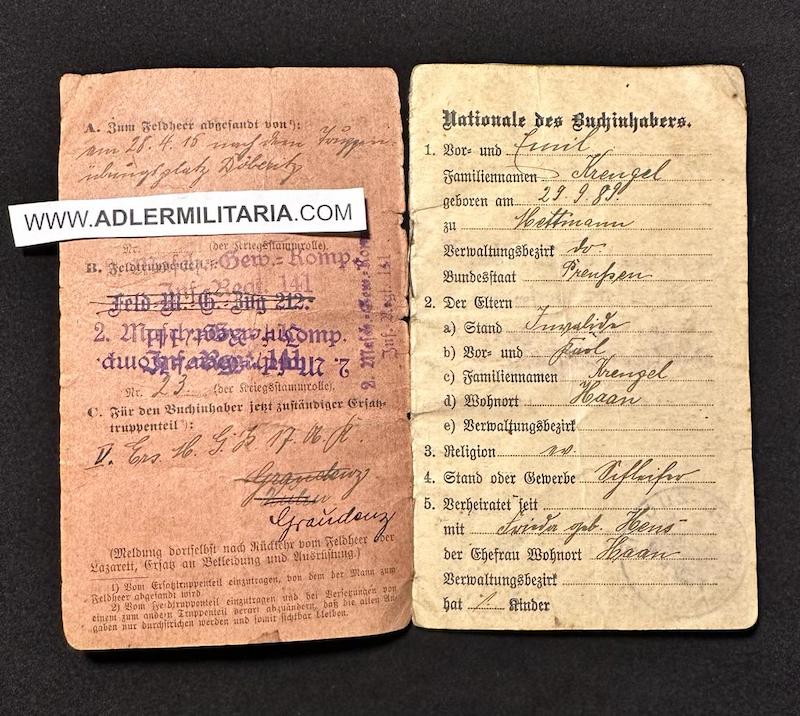 A. Zum Feldheer abgesandt von¹):
am 28.4.15 nach dem Truppen
übungsplatz Döberitz
WWW.ADLERMILITARIA.COM
Nr. (der Kriegsstammrolle).
B. Feldtruppenteil
Masch.-Gew.-Komp.
Inf.-Regt. 141
Feld M. G. Zug 212.
2. Masch.-Gew.-Komp.
Inf.-Regt. 141
Nr. 23 (der Kriegsstammrolle).
2. Masch.-Gew.-Komp.
Inf.-Regt. 141
C. Für den Buchinhaber jetzt zuständiger Ersatz-
truppenteil ¹):
V. Ers. M. G. K 17. A. K.
Graudenz
Graudenz
(Meldung dortselbst nach Rückkehr vom Feldheer oder
Lazarett, Ersatz an Bekleidung und Ausrüstung.)
1) Vom Ersatztruppenteil einzutragen, von dem der Mann zum
Feldheer abgesandt wird
2) Vom Feldtruppenteil einzutragen und bei Versetzungen von
einem zum andern Truppenteil derart abzuändern, daß die alten An-
gaben nur durchstrichen werden und somit sichtbar bleiben.
Nationale des Buchinhabers.
1. Vor- und Emil
Familiennamen Krengel
geboren am 29.9.89.
zu Mettmann
Verwaltungsbezirk do
Bundesstaat Preußen
2. Der Eltern
a) Stand Invalide
b) Vor- und Karl
c) Familiennamen Krengel
d) Wohnort Haan
e) Verwaltungsbezirk
3. Religion ev.
4. Stand oder Gewerbe Schleifer
5. Verheiratet seit
mit geb. Hens
der Ehefrau Wohnort Haan
Verwaltungsbezirk
hat 1. Kinder